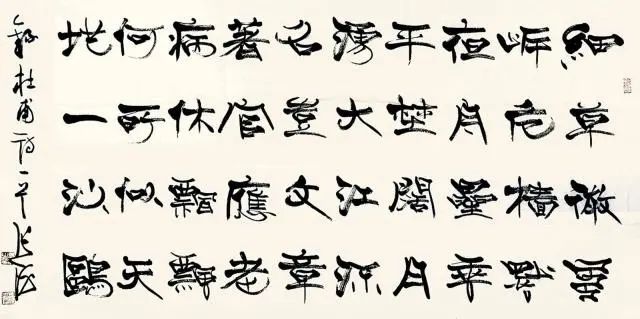 細草微風
岸危檣獨
夜舟星垂
平埜闊月
湧大江流
名豈文章
著官應老
病休飄飄
何所似天
地一沙鷗
錄杜甫詩一首